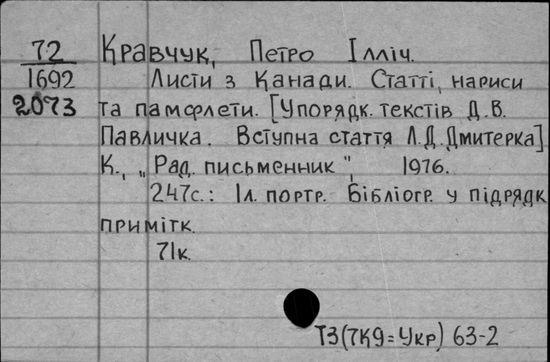 72 Кравчук, Петро Ілліч.
1692 Листи з Канади. Статті, нариси
2073 та памфлети. [Упорядк. текстів Д.В.
Павличка. Вступна стаття Л.Д.Дмитерка]
К., „Рад. письменник", 1976.
247с.: Іл. портр. Бібліогр. у підрядк.
примітк.
71к.
Т3(7К9=Укр) 63-2